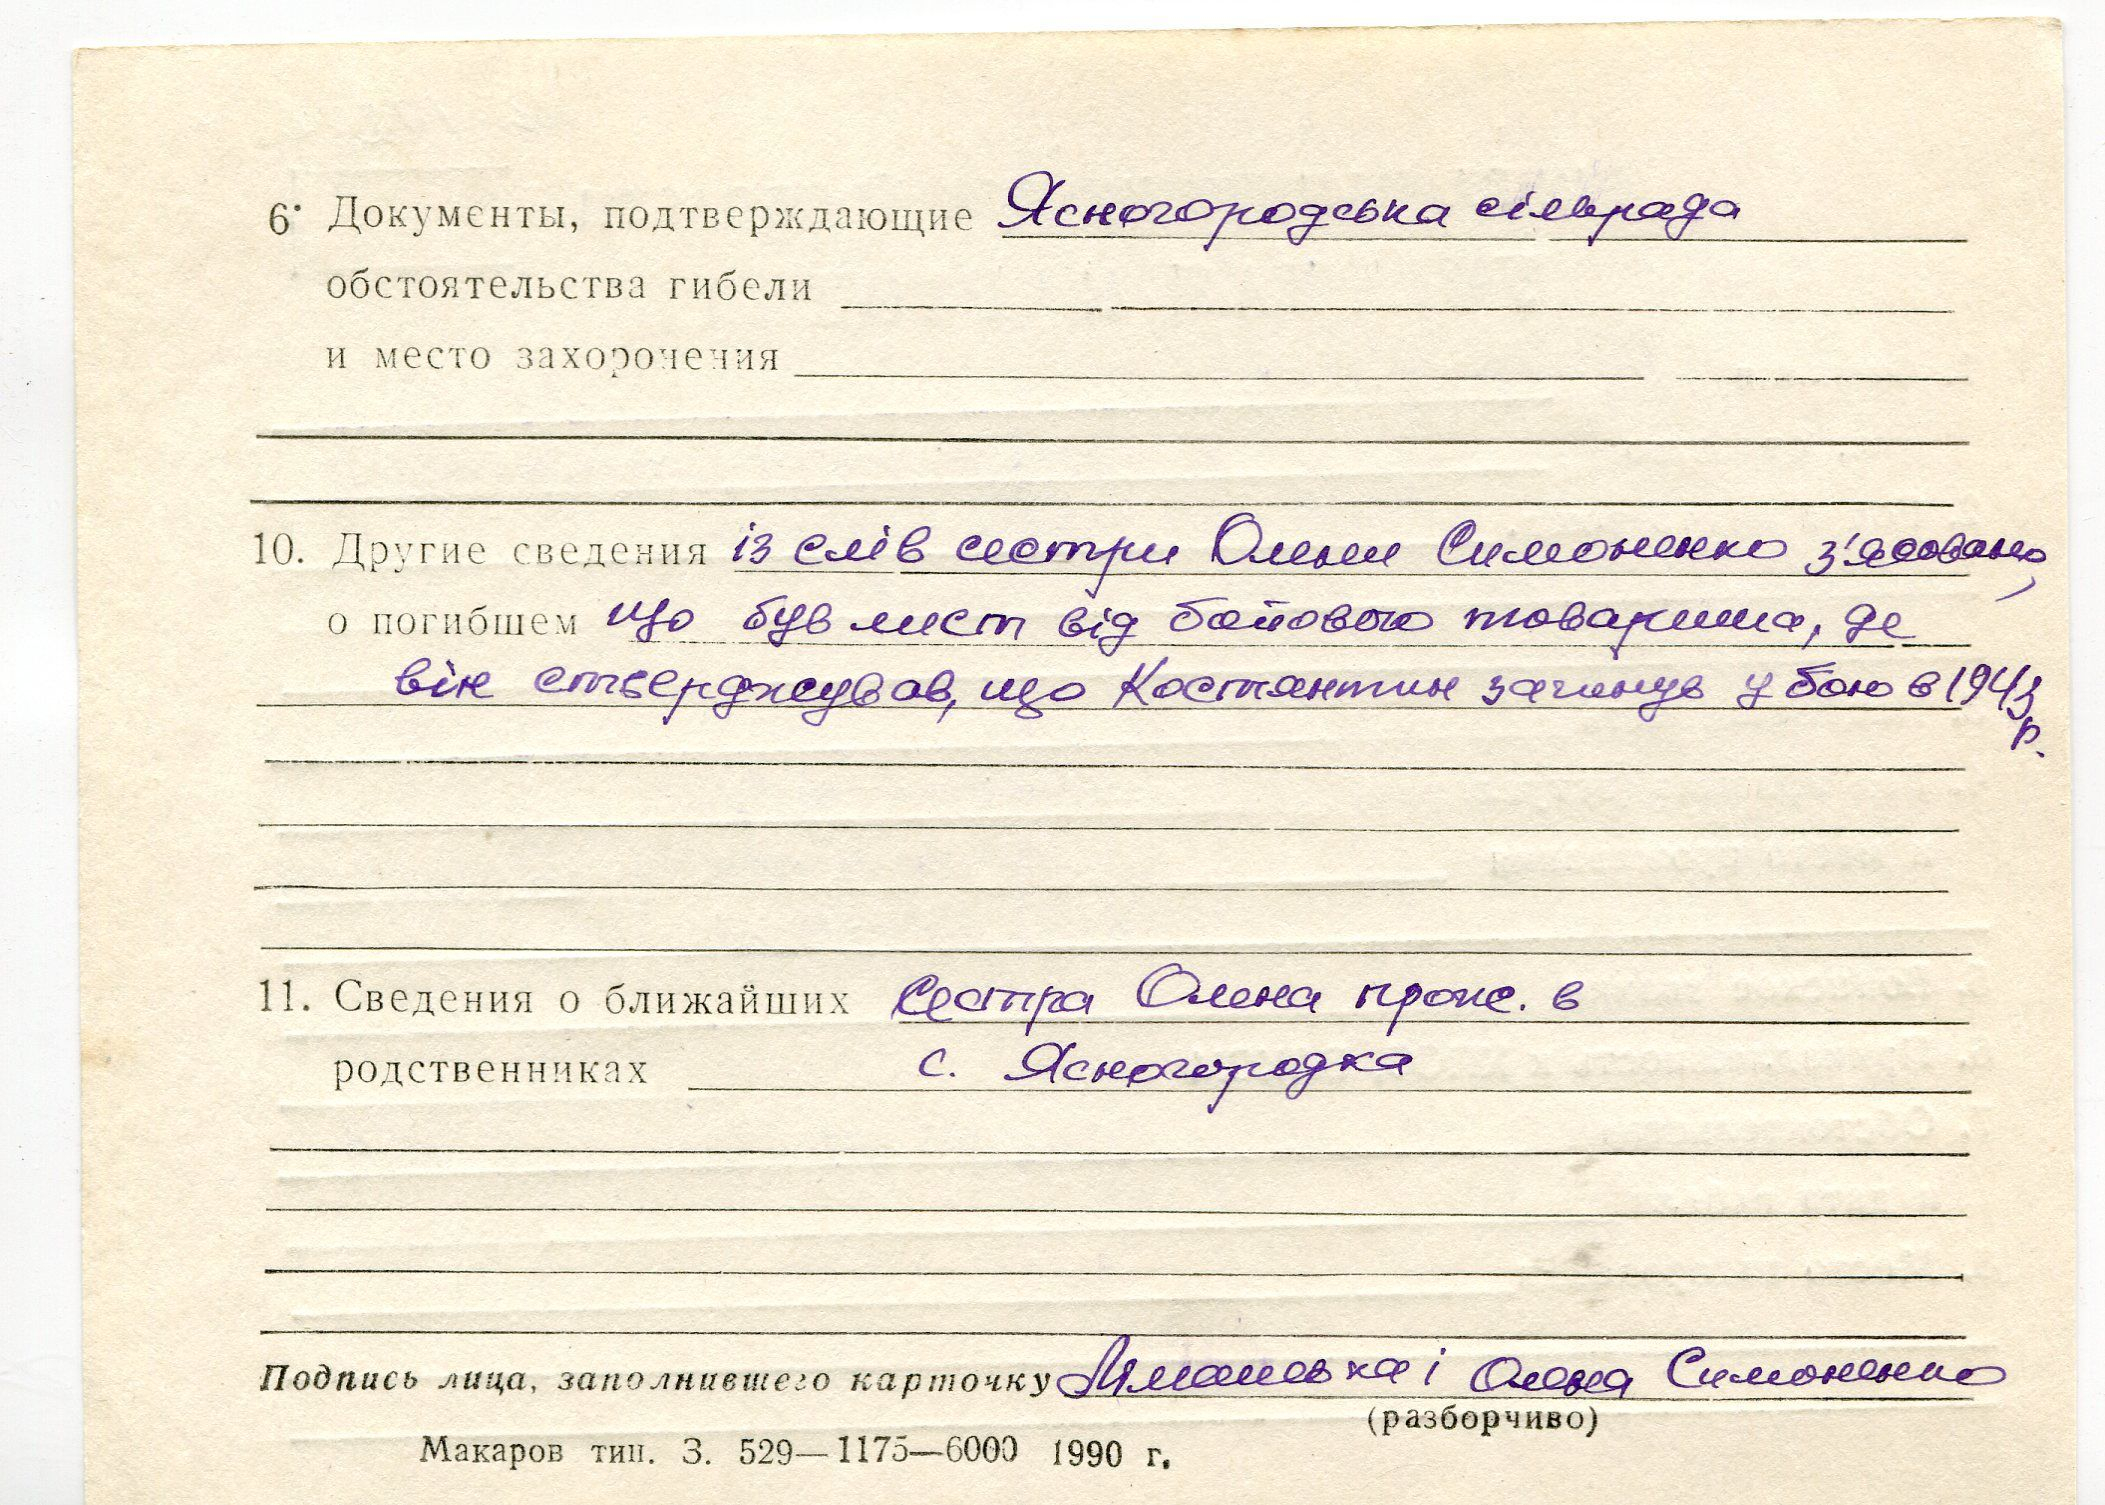 6. Документы, подтверждающие Ясногородська сільрада
обстоятельства гибели
и место захоронения
10. Другие сведения із слів сестри Олени Симоненко з'ясовано,
о погибшем що був лист від бойового товариша, де
він стверджував, що Костянтин загинув у бою в 1943 р.
11. Сведения о ближайших Сестра Олена прож. в
родственниках с. Ясногородка
Подпись лица, заполнившего карточку і Олена Симоненко
(разборчиво)
Макаров тип. З. 529—1175—6000 1990 г.